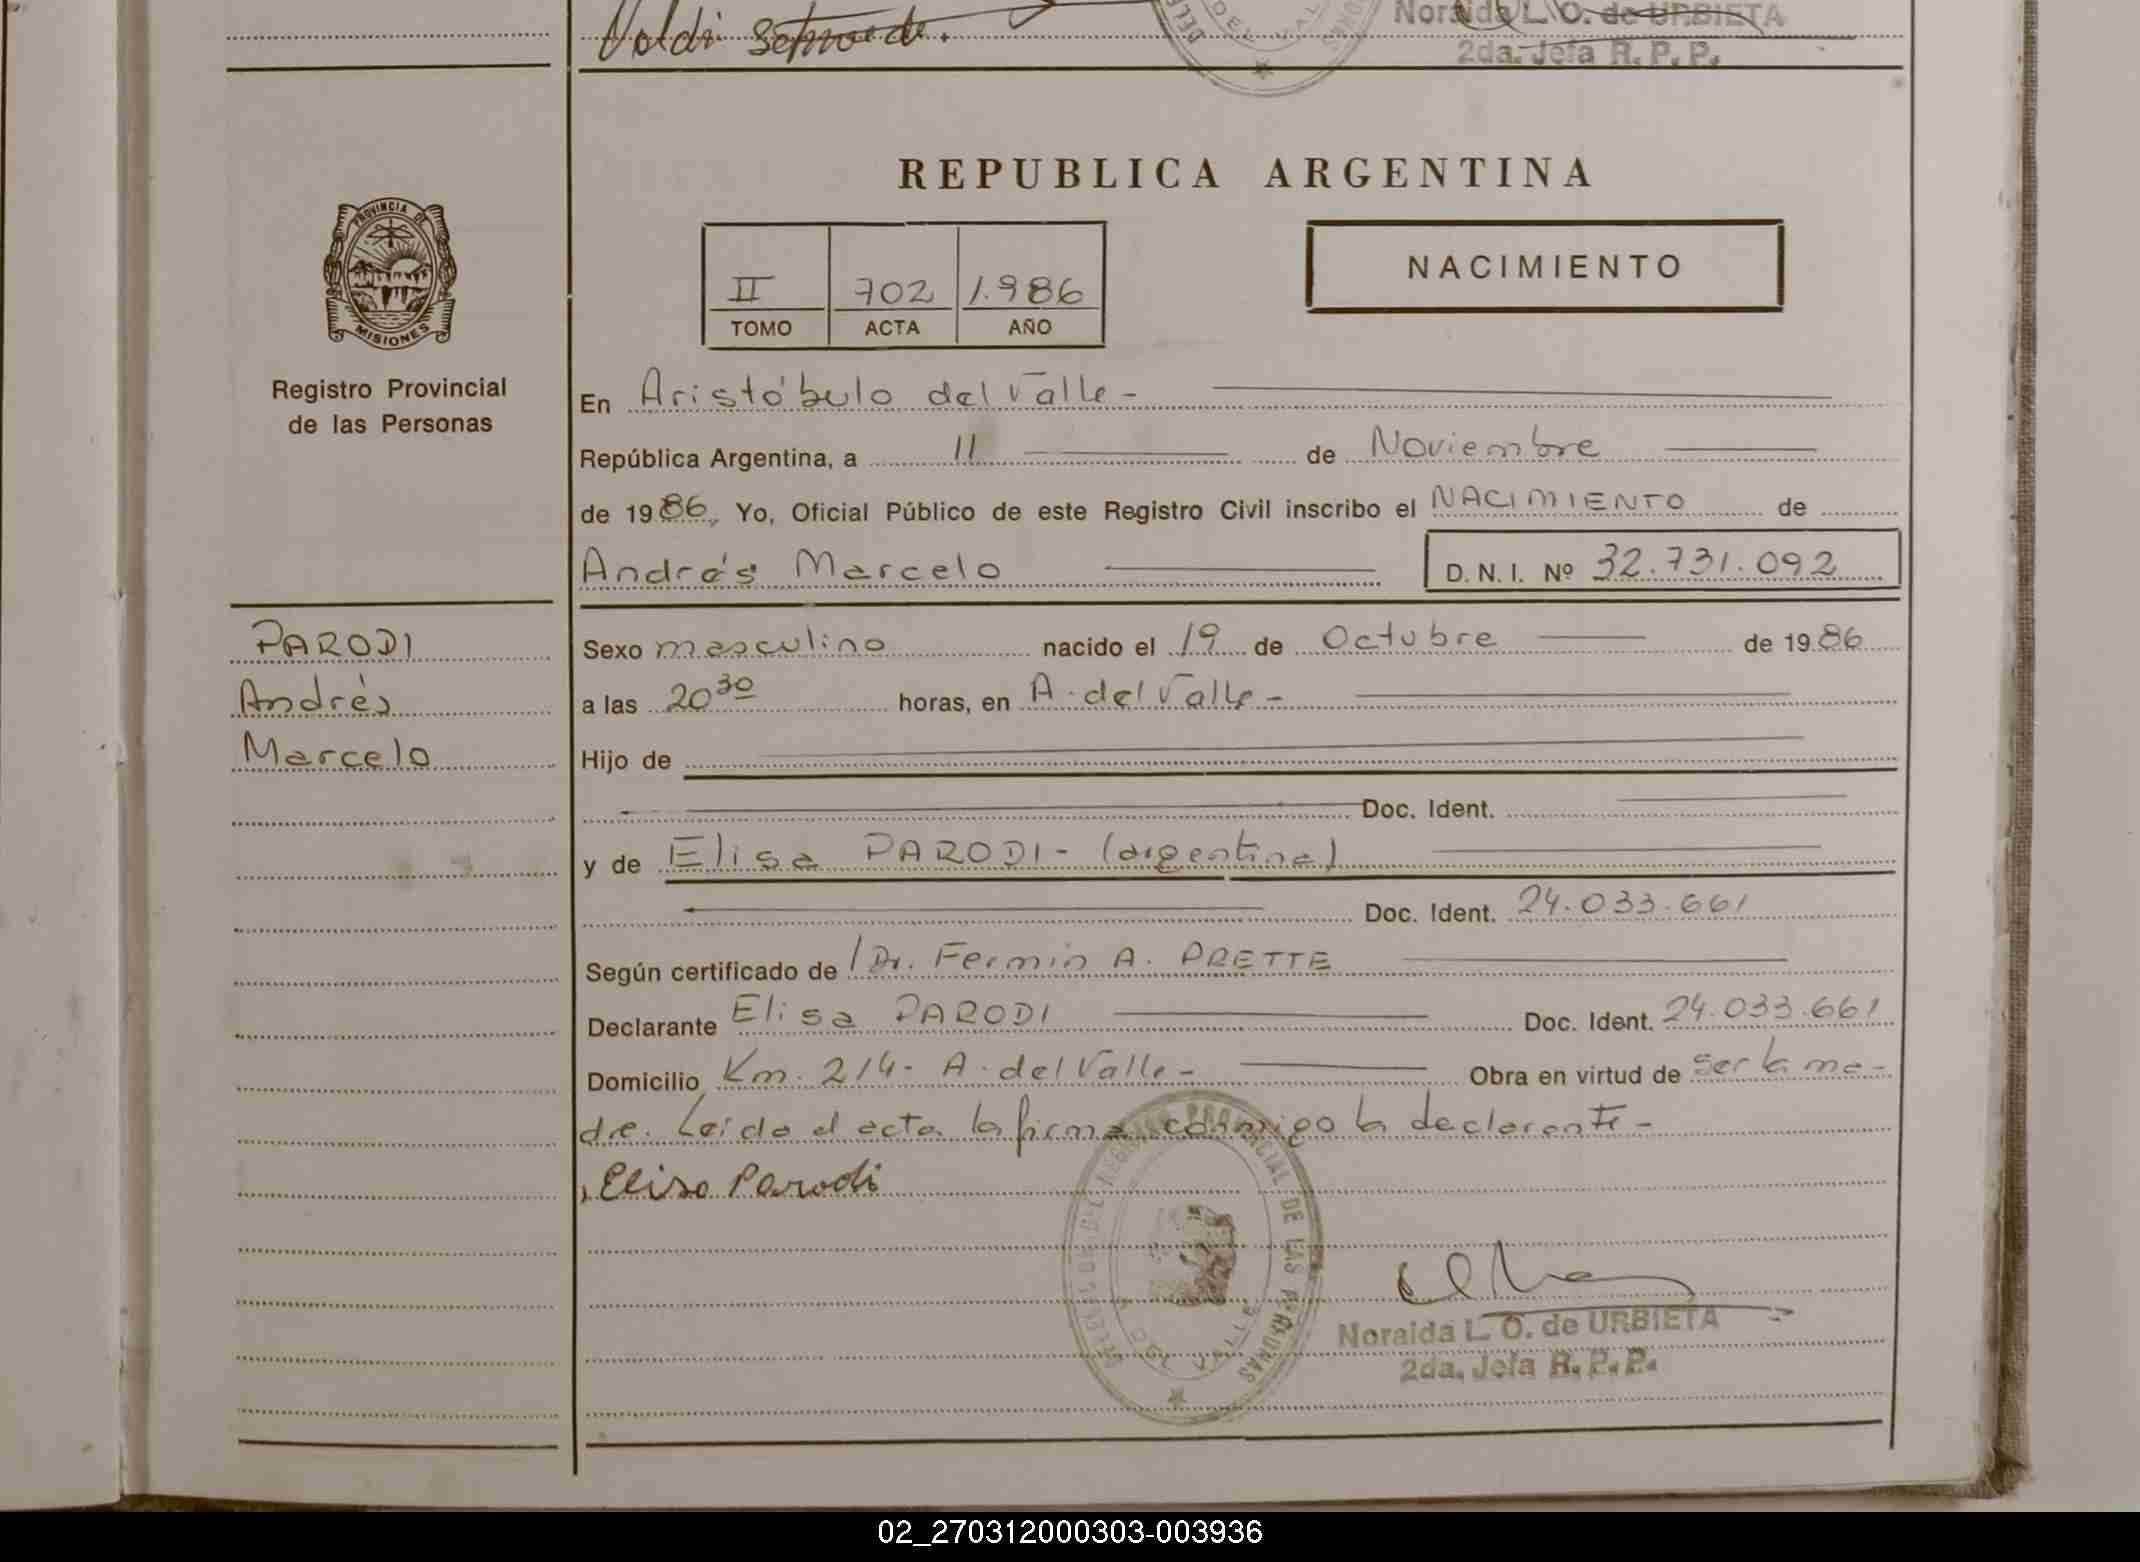 Noraida L. O. de URBIETA
2da. Jefa R. P. P.
REPUBLICA ARGENTINA
PROVINCIA DE
MISIONES
Registro Provincial
de las Personas
II 702 1.986
TOMO ACTA AÑO
NACIMIENTO
En Aristóbulo del Valle -
República Argentina, a 11 de Noviembre
de 1986, Yo, Oficial Público de este Registro Civil inscribo el NACIMIENTO de
Andrés Marcelo D. N. I. Nº 32.731.092
PARODI
Andrés
Marcelo
Sexo masculino nacido el 19 de Octubre de 1986
a las 20 30 horas, en A. del Valle -
Hijo de
Doc. Ident.
y de Elisa PARODI - (argentina)
Doc. Ident. 24.033.661
Según certificado de Dr. Fermin A. PRETTE
Declarante Elisa PARODI Doc. Ident. 24.033.661
Domicilio Km. 214 - A. del Valle - Obra en virtud de ser la ma-
dre. Leída el acta la firma conmigo la declarante -
Elisa Parodi
DELEGACION DEL REGISTRO PROVINCIAL DE LAS PERSONAS
A. DEL VALLE
Noraida L. O. de URBIETA
2da. Jefa R. P. P.
02_270312000303-003936